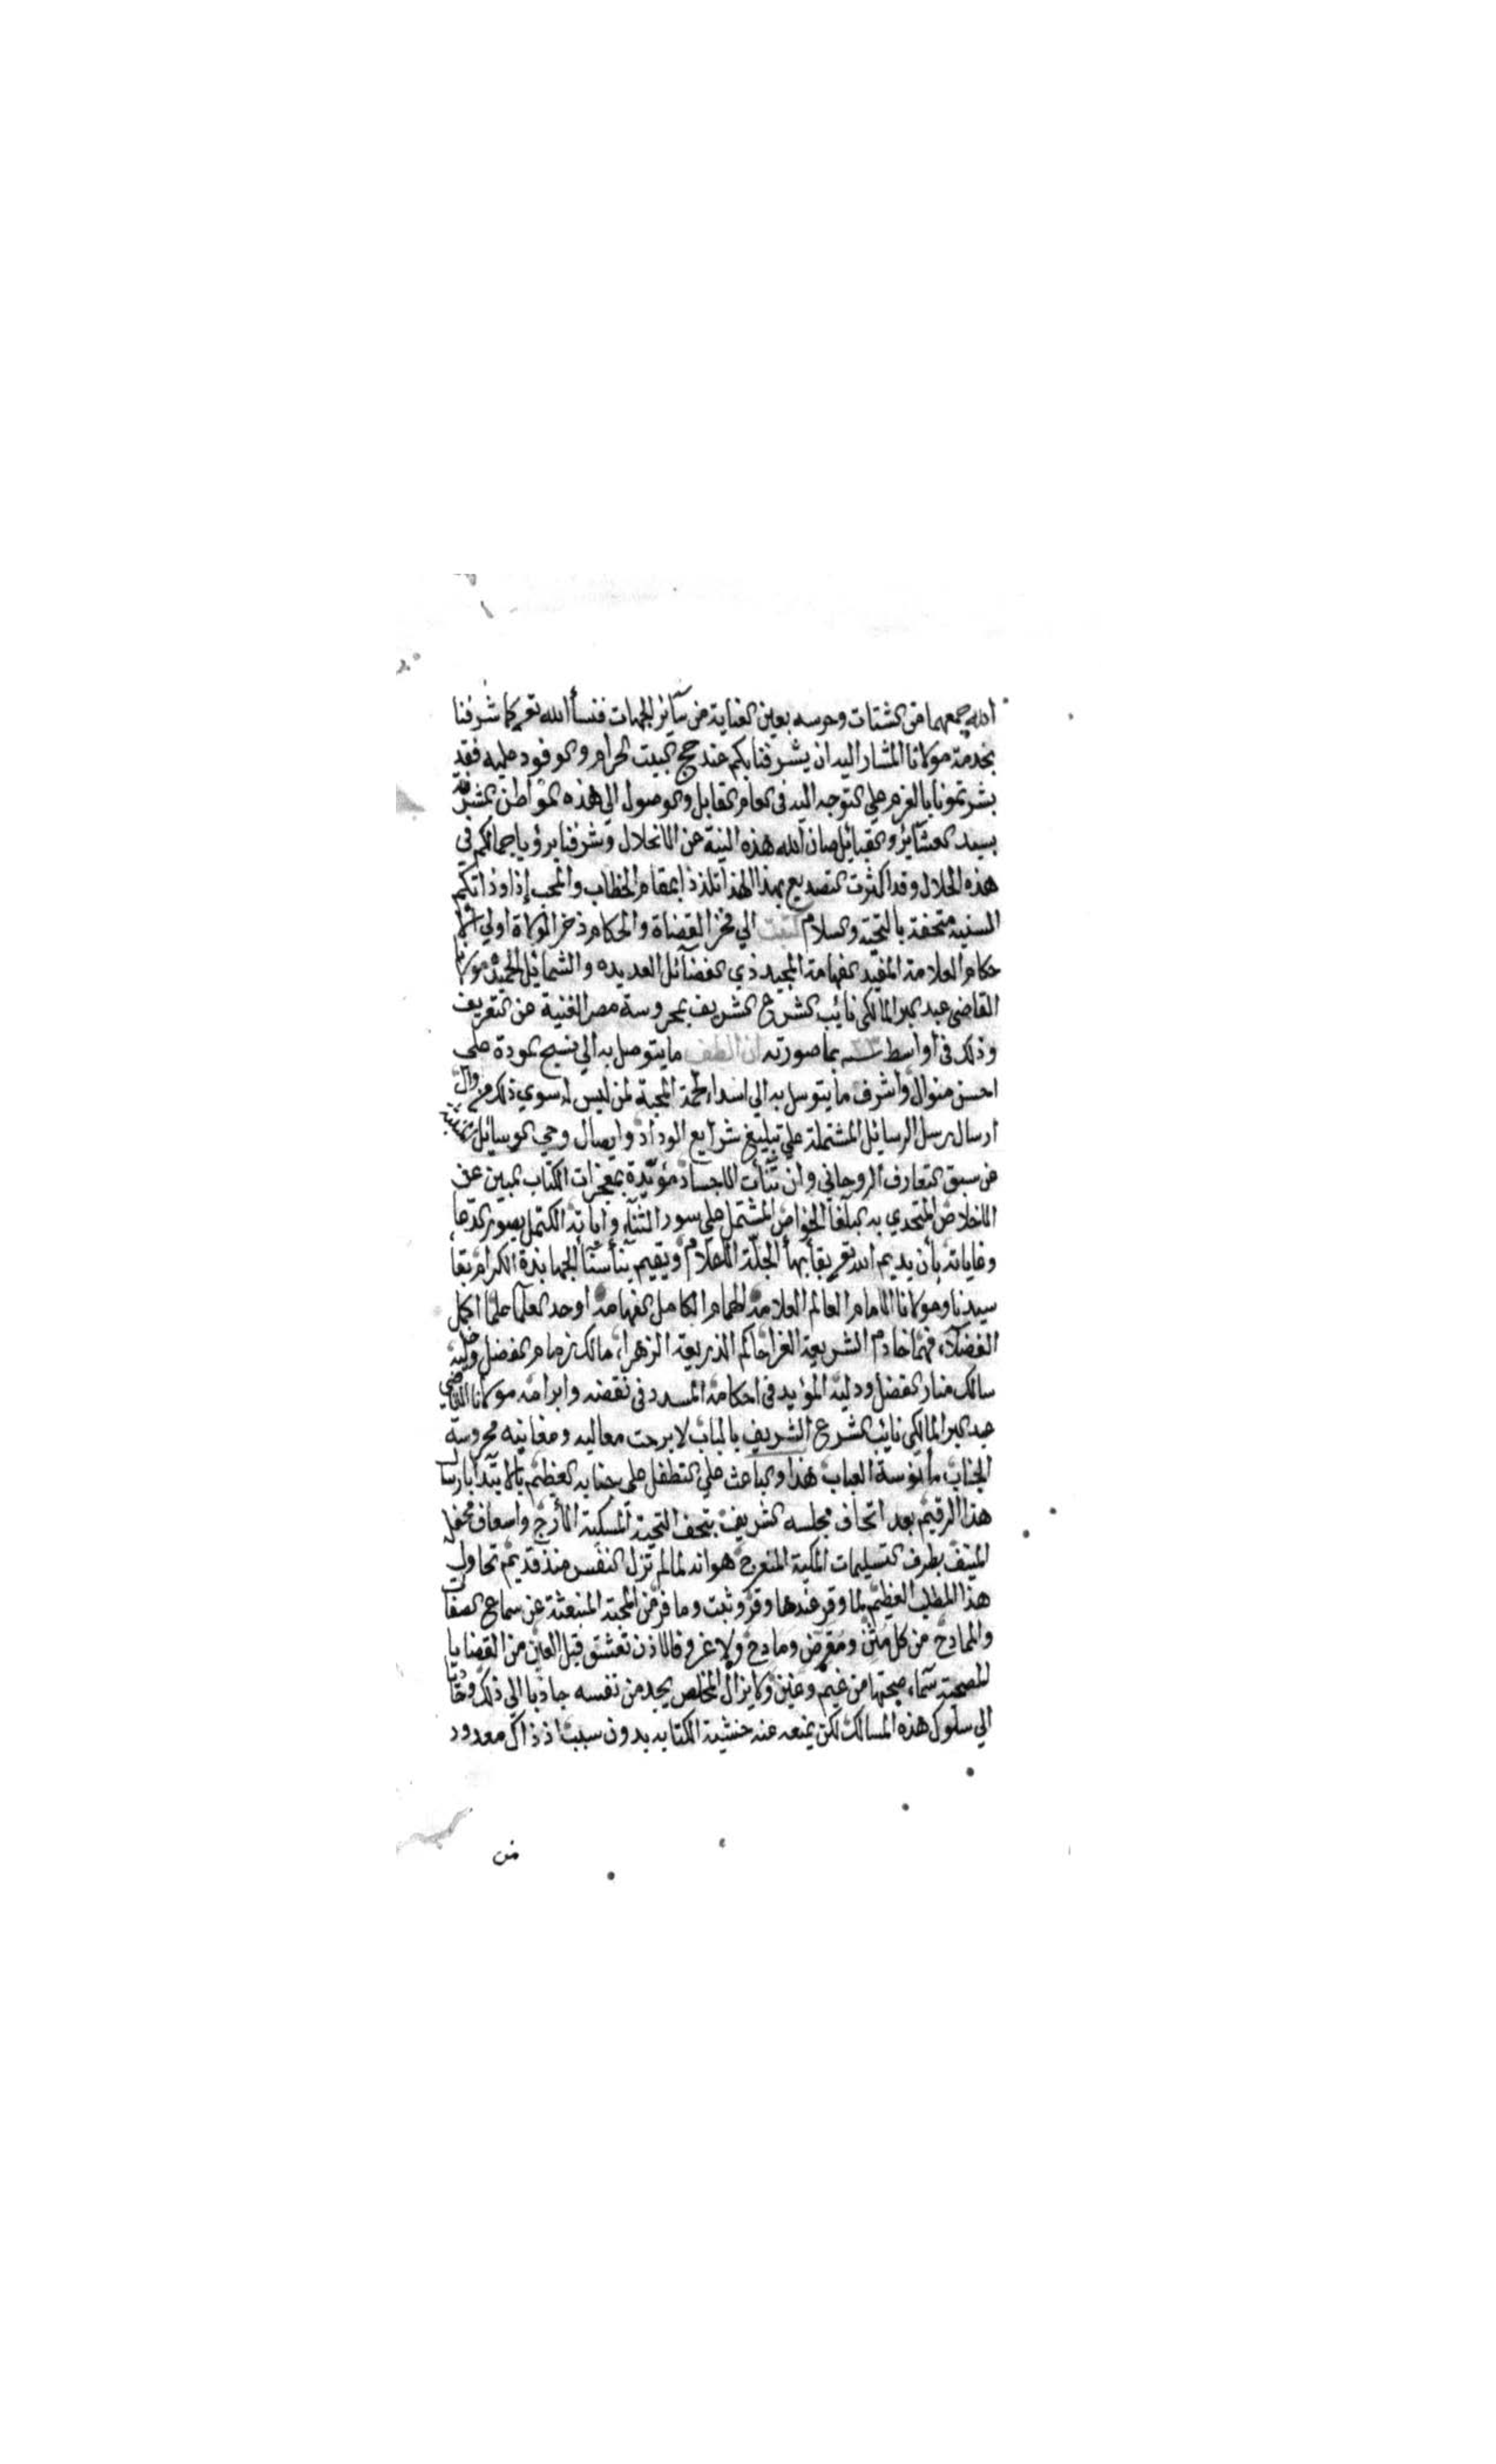 الله جمعهما من الشتات وحرسه بعين العناية من سائر الجهات فنسأ الله تعالى كما شرفنا
بخدمة مولانا المشار اليه ان يشرفنا بكم عند حج البيت الحرام والوفود عليه فقد
بشرتمونا بالعزم علي التوجه اليه في العام القابل والوصول الي هذه المواطن المشرفة
بسيد العشائر والقبائل صان الله هذه النية عن الانحلال وشرفنا برؤيا جمالكم في
هذه الحلال وقد اكثرت التصديع بهذا الهذا تلذذا بمقام الخطاب والمحب إذا وذاتكم
السنيه متحفة بالتحية والسلام كتبت الي فخر القضاة والحكام ذخر الولاة اولي الا
حكام العلامة المفيد الفهامة المجيد ذي الفضائل العديده والشمائل الحميدة مولانا
القاضي عبد البر المالكي نائب الشرع الشريف بمحروسة مصر الغنية عن التعريف
وذلك في أواسط سنه ٢٣ بما صورته ان الطف ما يتوصل به الي نسج المودة علي
احسن منوال واشرف ما يتوسل به الي اسداء لحمة المحبة لمن ليس له سوي ذلك من وال
ارسال رسل الرسائل المشتملة علي تبليغ شرايع الوداد وايصال وحي الوسائل
من سبق التعارف الروحاني وان تنأت الاجساد مؤيدة بمعجزات الكتاب المبين عن
الاخلاص المتحدي به البلغا الخواص المشتمل علي سور الثناء واياته المكتمل بصور الدعا
وغاياته بأن يديم الله تعالى بقا بها الجلة الاعلام ويقيم بنا سنا الجهابذة الكرام ببقا
سيدنا ومولانا الامام العالم العلامة الهمام الكامل الفهامة اوحد العلما علما اكمل
الفضلاء فهما خادم الشريعة الغرا حاكم الذريعة الزهراء مالك زمام الفضل وخليله
سالك منار الفضل ودليله المؤيد في احكامه المسدد في نقضه وابرامه مولانا القاضي
عبد البر المالكي نايب الشرع الشريف بالباب لا برحت معاليه ومغانيه محروسة
الجناب مأنوسة العباب هذا والباعث علي التطفل علي جنابه العظيم بالابتدا بارسال
هذا الرقيم بعد اتحاف مجلسه الشريف بتحف التحية المسكية الأرج واسعاف محفله
المنيف بطرف التسليمات المكية المنعرج هو انه لما لم تزل النفس منذ قديم تحاول
هذا المطلب العظيم لما وقر عندها وقر وثبت وما فر من المحبة المنبعثة عن سماع الصفات
والممادح من كل مثن ومقرض ومادح ولا غرو فالاذن تعشق قبل العين من القضايا
المصحية سماء صحتها من غيم وغين ولا يزال المخلص يجد من نفسه جاذبا الي ذلك وحاديا
الي سلوك هذه المسالك لكن يمنعه عنه خشية الكتابه بدون سبب اذ ذاك معدود
من